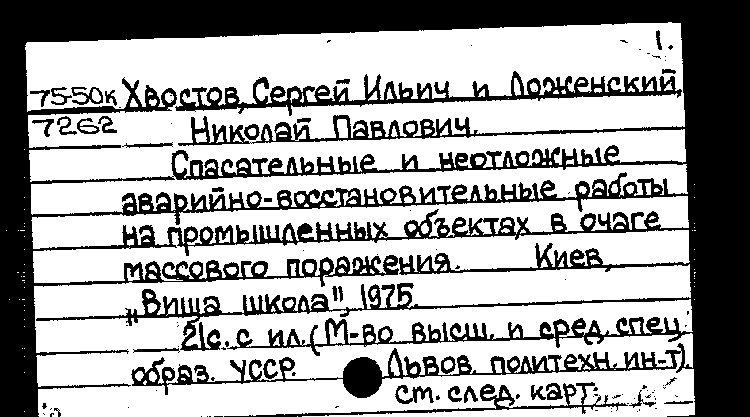 1.
75-50к Хвостов, Сергей Ильич и Ложенский,
7262 Николай Павлович.
Спасательные и неотложные
аварийно-восстановительные работы
на промышленных объектах в очаге
массового поражения. Киев,
„Вища школа", 1975.
21с. с ил. (М-во высш. и сред. спец.
образ. УССР. Львов. политехн. ин-т).
ст. след. карт.